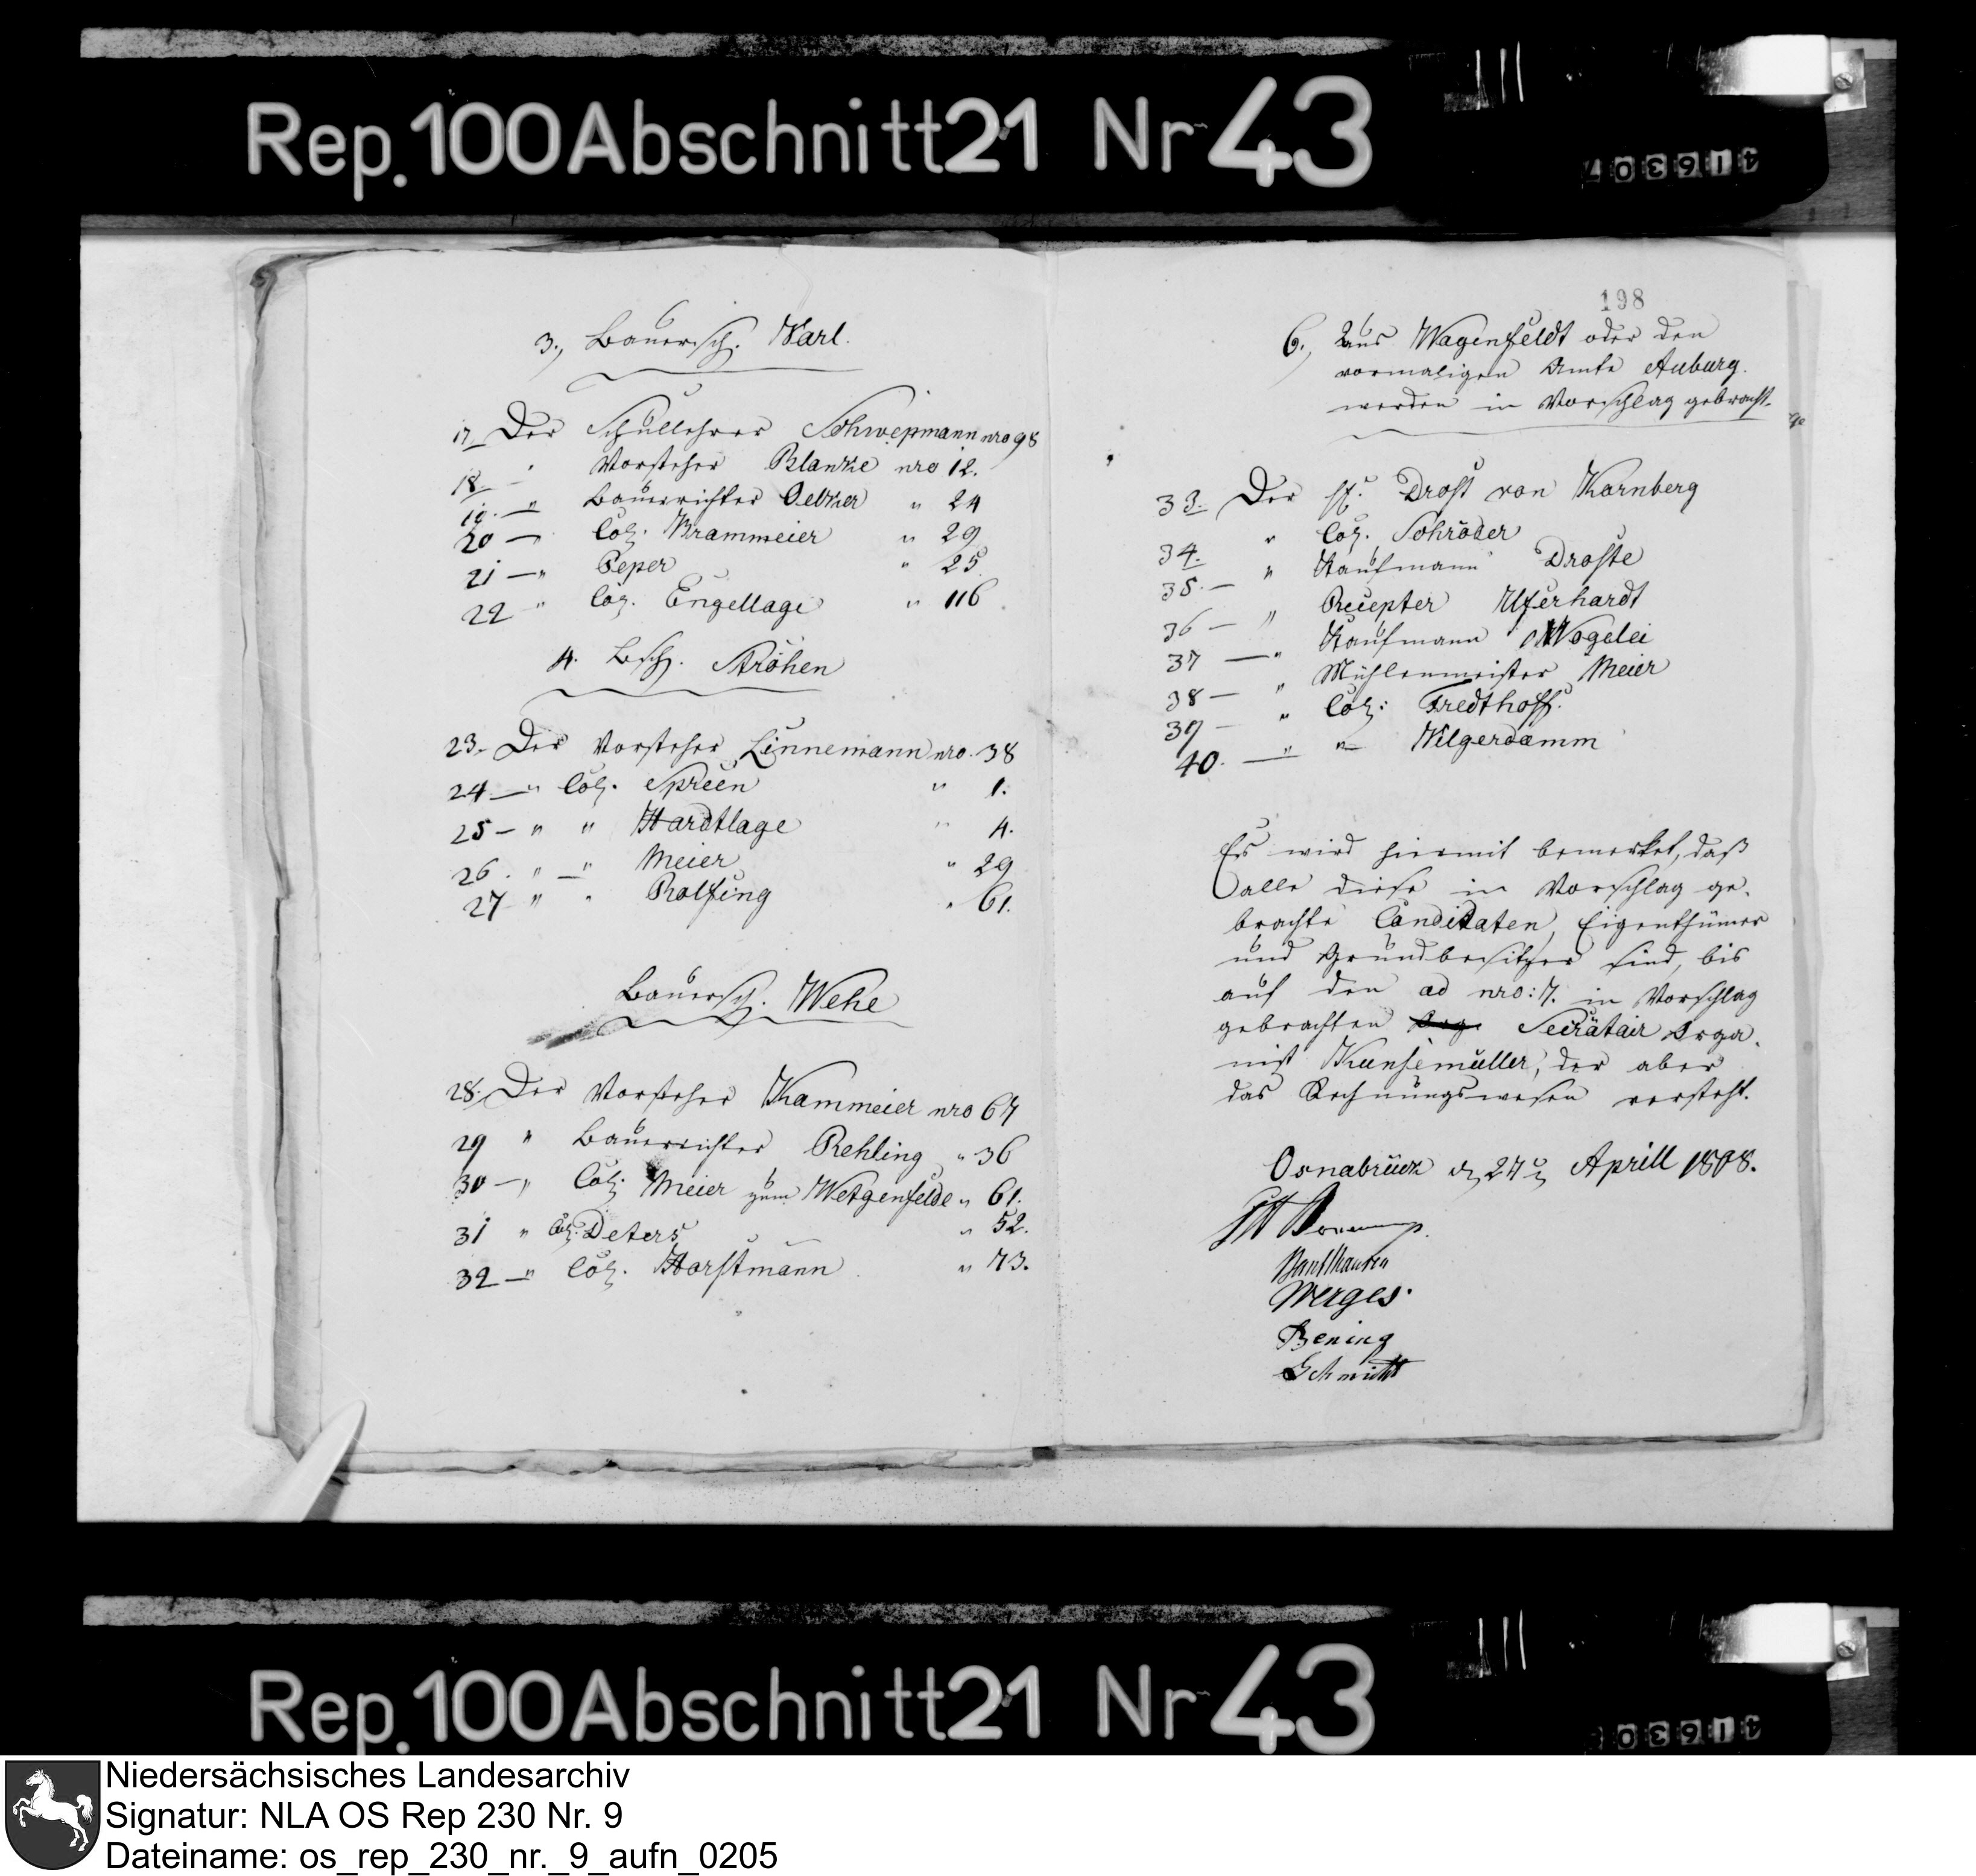 Rep.100Abschnitt21 Nr 43
416307
3., Bauersch. Varl.
17 Der Schullehrer Schwepmann nro 98
18 - Vorsteher Blanke nro 12.
19. - " Bauerrichter Oelker " 24
20 - " Col. Brammeier " 29
21 - " Peper " 25
22 " Col. Engellage " 116
4. Bsch. Ströhen
23. Der Vorsteher Linnemann nro. 38
24 - " Col. Spreen " 1.
25 - " " Hardtlage " 4.
26. " - " Meier " 29
27 " " Rolfing " 61.
Bauersch. Wehe
28. Der Vorsteher Kammeier nro 67
29 " Bauerrichter Rehling " 36
30 - " Col. Meier zum Wetgenfelde " 61.
31 " Col. Deters " 52.
32 - " Col. Horstmann " 73.
198
6., Aus Wagenfeldt oder den
vormaligen Amte Auburg.
werden in Vorschlag gebracht.
33. Der H. Drost von Kornberg
34. " Col. Schröder
35. - " Kaufmann Droste
36 - " Recepter Uferhardt
37 - " Kaufmann Vogelei
38 - " Mühlenmeister Meier
39 - " Col: Fredthoff.
40. - " " Wilgerdamm
Es wird hiermit bemerket, daß
alle diese in Vorschlag ge-
brachte Canditaten, Eigenthümer
und Grundbesitzer sind, bis
auf den ad nro: 7. in Vorschlag
gebrachten Secrätair Orga-
nist Kunsemüller, der aber
das Rechnungswesen versteht.
Osnabrück d 27 Aprill 1808.
Werges
Bening
Schmidt
Rep.100Abschnitt21 Nr 43
Niedersächsisches Landesarchiv
Signatur: NLA OS Rep 230 Nr. 9
Dateiname: os_rep_230_nr._9_aufn_0205